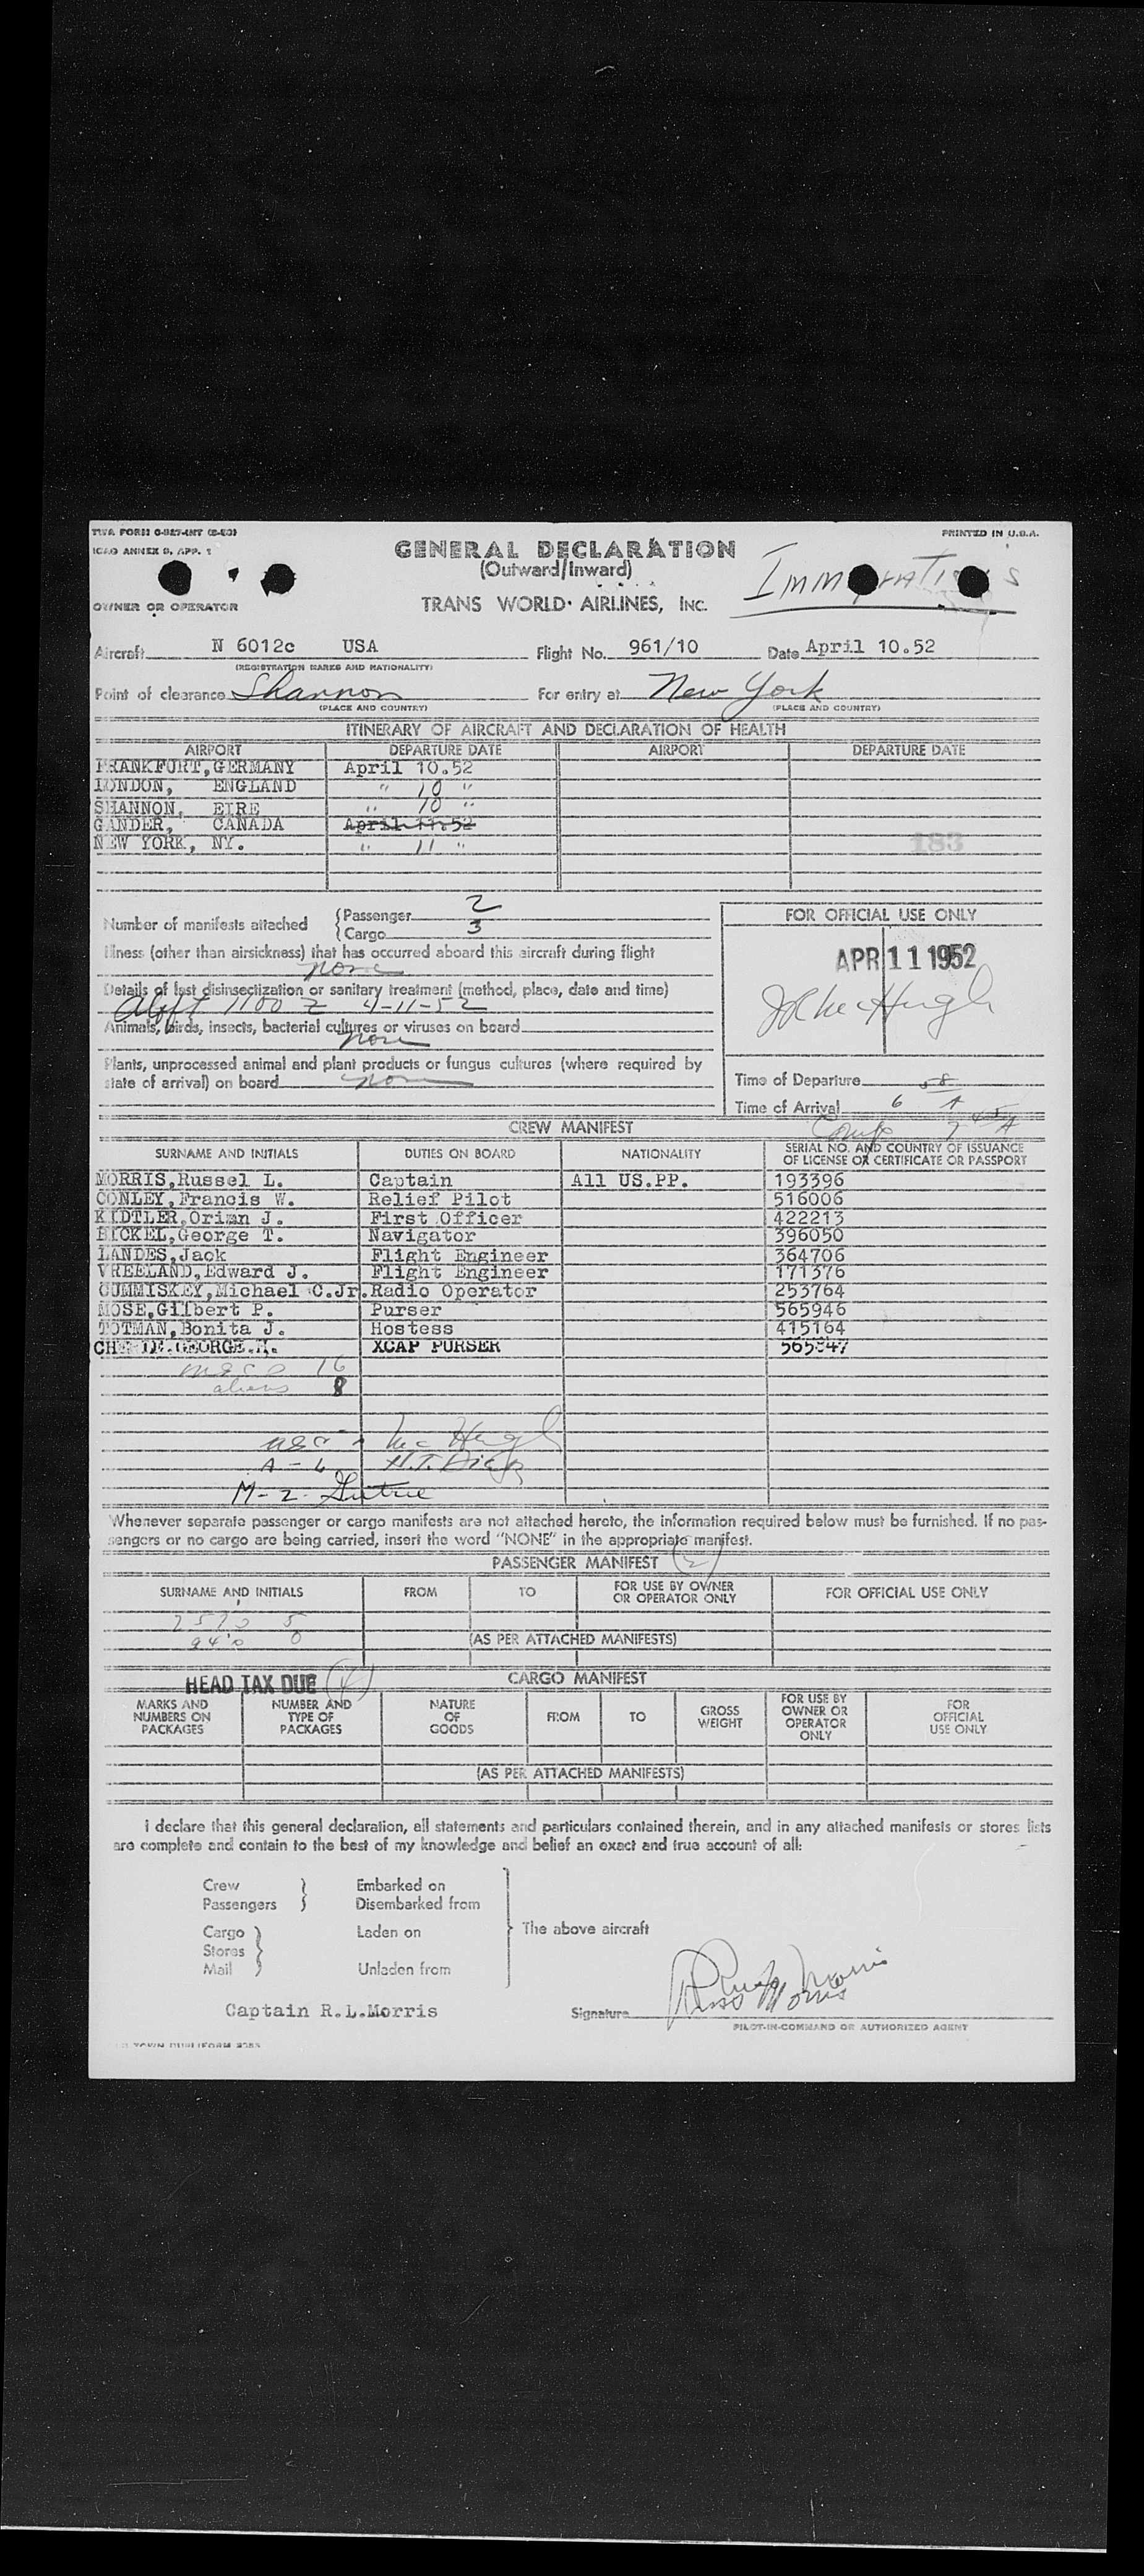 TWA FORM
ICAO ANNEX 9, APP. 1
PRINTED IN U.S.A.
GENERAL DECLARATION
(Outward/Inward)
OWNER OR OPERATOR TRANS WORLD AIRLINES, INC.
Aircraft N 6012c USA Flight No. 961/10 Date April 10.52
(REGISTRATION MARKS AND NATIONALITY)
Point of clearance Shannon For entry at New York
(PLACE AND COUNTRY) (PLACE AND COUNTRY)
ITINERARY OF AIRCRAFT AND DECLARATION OF HEALTH
AIRPORT DEPARTURE DATE AIRPORT DEPARTURE DATE
FRANKFURT, GERMANY April 10.52
LONDON, ENGLAND " 10 "
SHANNON, EIRE " 10 "
GANDER, CANADA April 11.52
NEW YORK, NY. " 11 "
183
Number of manifests attached { Passenger 2
{ Cargo 3
Illness (other than airsickness) that has occurred aboard this aircraft during flight
none
Details of last disinsectization or sanitary treatment (method, place, date and time)
Aloft 1100 Z 4-11-52
Animals, birds, insects, bacterial cultures or viruses on board
none
Plants, unprocessed animal and plant products or fungus cultures (where required by
state of arrival) on board none
FOR OFFICIAL USE ONLY
APR 11 1952
Time of Departure
Time of Arrival 6 A
CREW MANIFEST
SURNAME AND INITIALS DUTIES ON BOARD NATIONALITY SERIAL NO. AND COUNTRY OF ISSUANCE
OF LICENSE OR CERTIFICATE OR PASSPORT
MORRIS, Russel L. Captain All US.PP. 193396
CONLEY, Francis W. Relief Pilot 516006
KIDTLER, Orian J. First Officer 422213
BICKEL, George T. Navigator 396050
LANDES, Jack Flight Engineer 364706
VREELAND, Edward J. Flight Engineer 171376
CUMMISKEY, Michael C.Jr. Radio Operator 253764
MOSE, Gilbert P. Purser 565946
TOTMAN, Bonita J. Hostess 415164
GEORGE.H. XCAP PURSER
16
aliens 8
Mc Hugh
A - 6
M - 2 -
Whenever separate passenger or cargo manifests are not attached hereto, the information required below must be furnished. If no pas-
sengers or no cargo are being carried, insert the word "NONE" in the appropriate manifest.
PASSENGER MANIFEST (2)
SURNAME AND INITIALS FROM TO FOR USE BY OWNER
OR OPERATOR ONLY FOR OFFICIAL USE ONLY
(AS PER ATTACHED MANIFESTS)
HEAD TAX DUE CARGO MANIFEST
MARKS AND
NUMBERS ON
PACKAGES NUMBER AND
TYPE OF
PACKAGES NATURE
OF
GOODS FROM TO GROSS
WEIGHT FOR USE BY
OWNER OR
OPERATOR
ONLY FOR
OFFICIAL
USE ONLY
(AS PER ATTACHED MANIFESTS)
I declare that this general declaration, all statements and particulars contained therein, and in any attached manifests or stores lists
are complete and contain to the best of my knowledge and belief an exact and true account of all:
Crew } Embarked on
Passengers } Disembarked from
Cargo } Laden on The above aircraft
Stores }
Mail } Unladen from
Captain R.L.Morris Signature Russ Morris
PILOT-IN-COMMAND OR AUTHORIZED AGENT